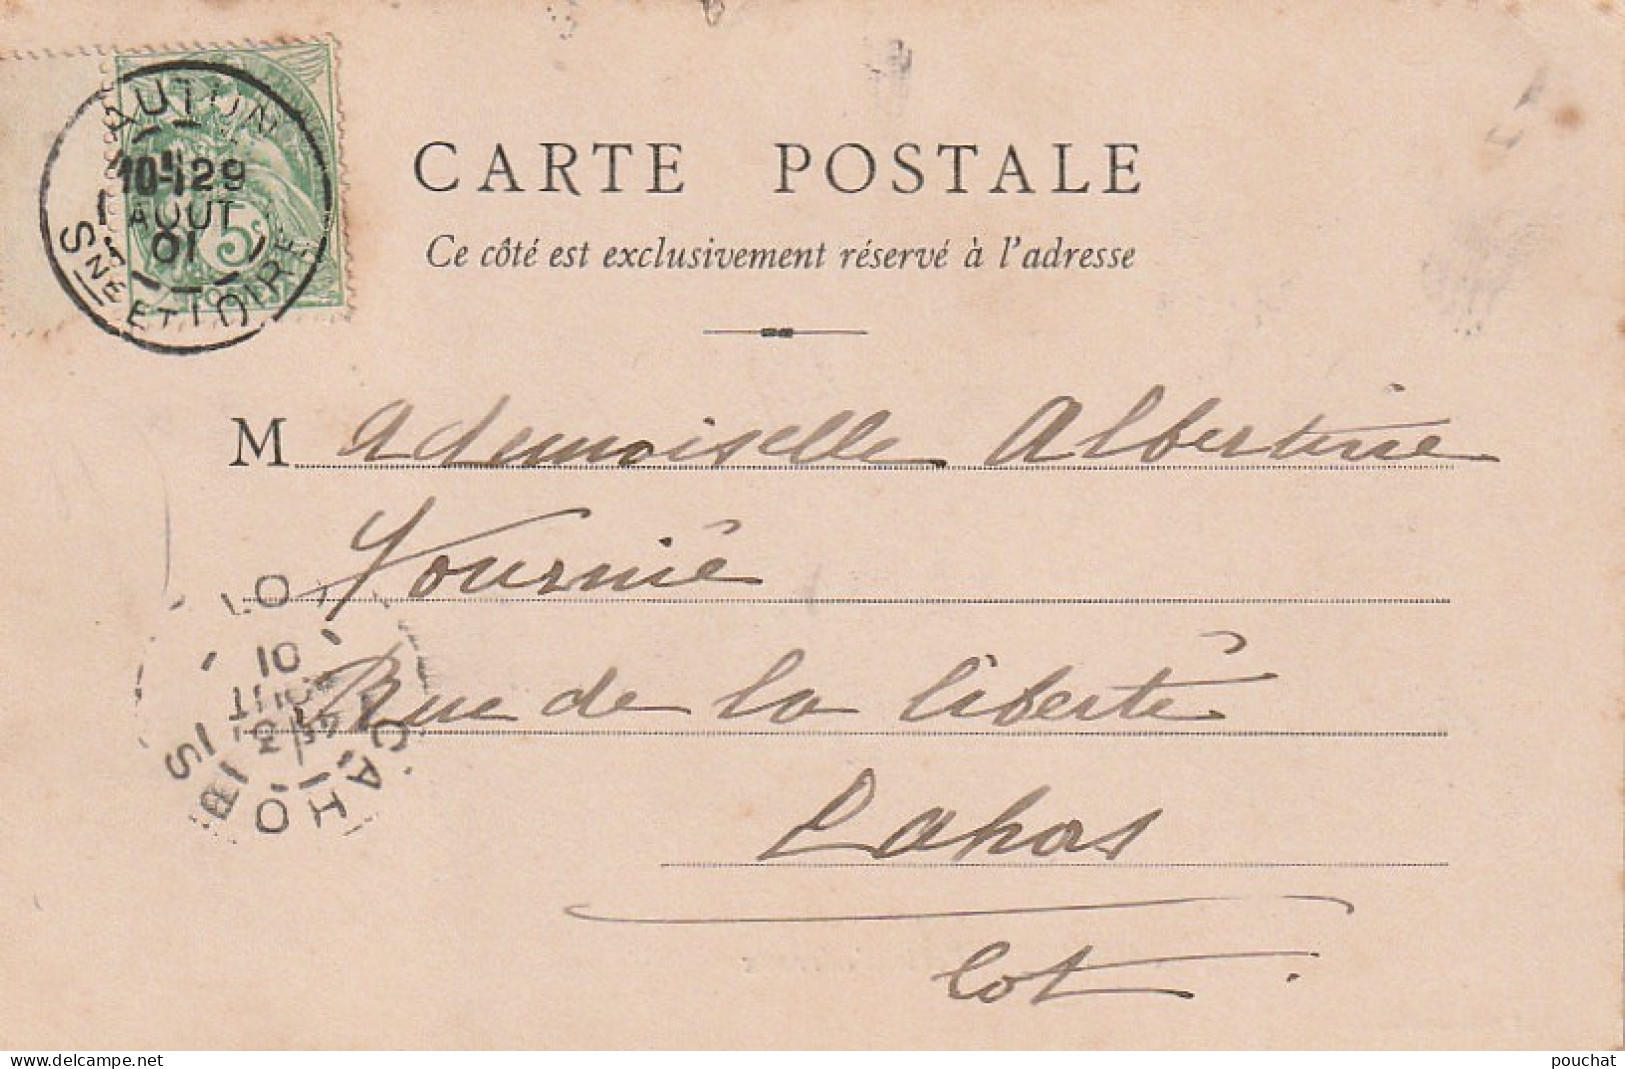 AUTUN
10-
29
AOUT
01
5c
SNE ET LOIRE
CARTE POSTALE
Ce côté est exclusivement réservé à l'adresse
Mademoiselle Albertine
Fournié
Rue de la liberté
Cahors
Lot.
CAHORS
LOT
AOUT
01
www.delcampe.net
pouchat